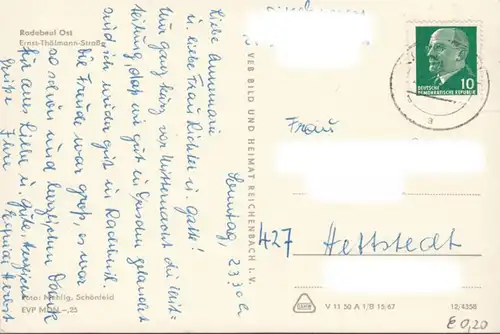 Radebeul Ost
Ernst-Thälmann-Straße
Sonntag, 23 30 Uhr
Liebe Annemarie
u. liebe Frau Richter u. Gatte!
Nur ganz kurz vor Mitternacht die Mit-
teilung, daß wir gut in Dresden gelandet
und ich wieder gut in Radebeul.
Die Freude war groß, es war
so schön und herzlichen Dank
für alles Liebe u. Gute, herzliche
Grüße Ihre
Foto: Nehlig, Schönfeld
EVP MDN –,25
VEB BILD UND HEIMAT REICHENBACH I. V.
DEUTSCHE
DEMOKRATISCHE REPUBLIK
10
a
Frau
427 Hettstedt
V 11 50 A 1/B 15/67
12/4358
€ 0,20